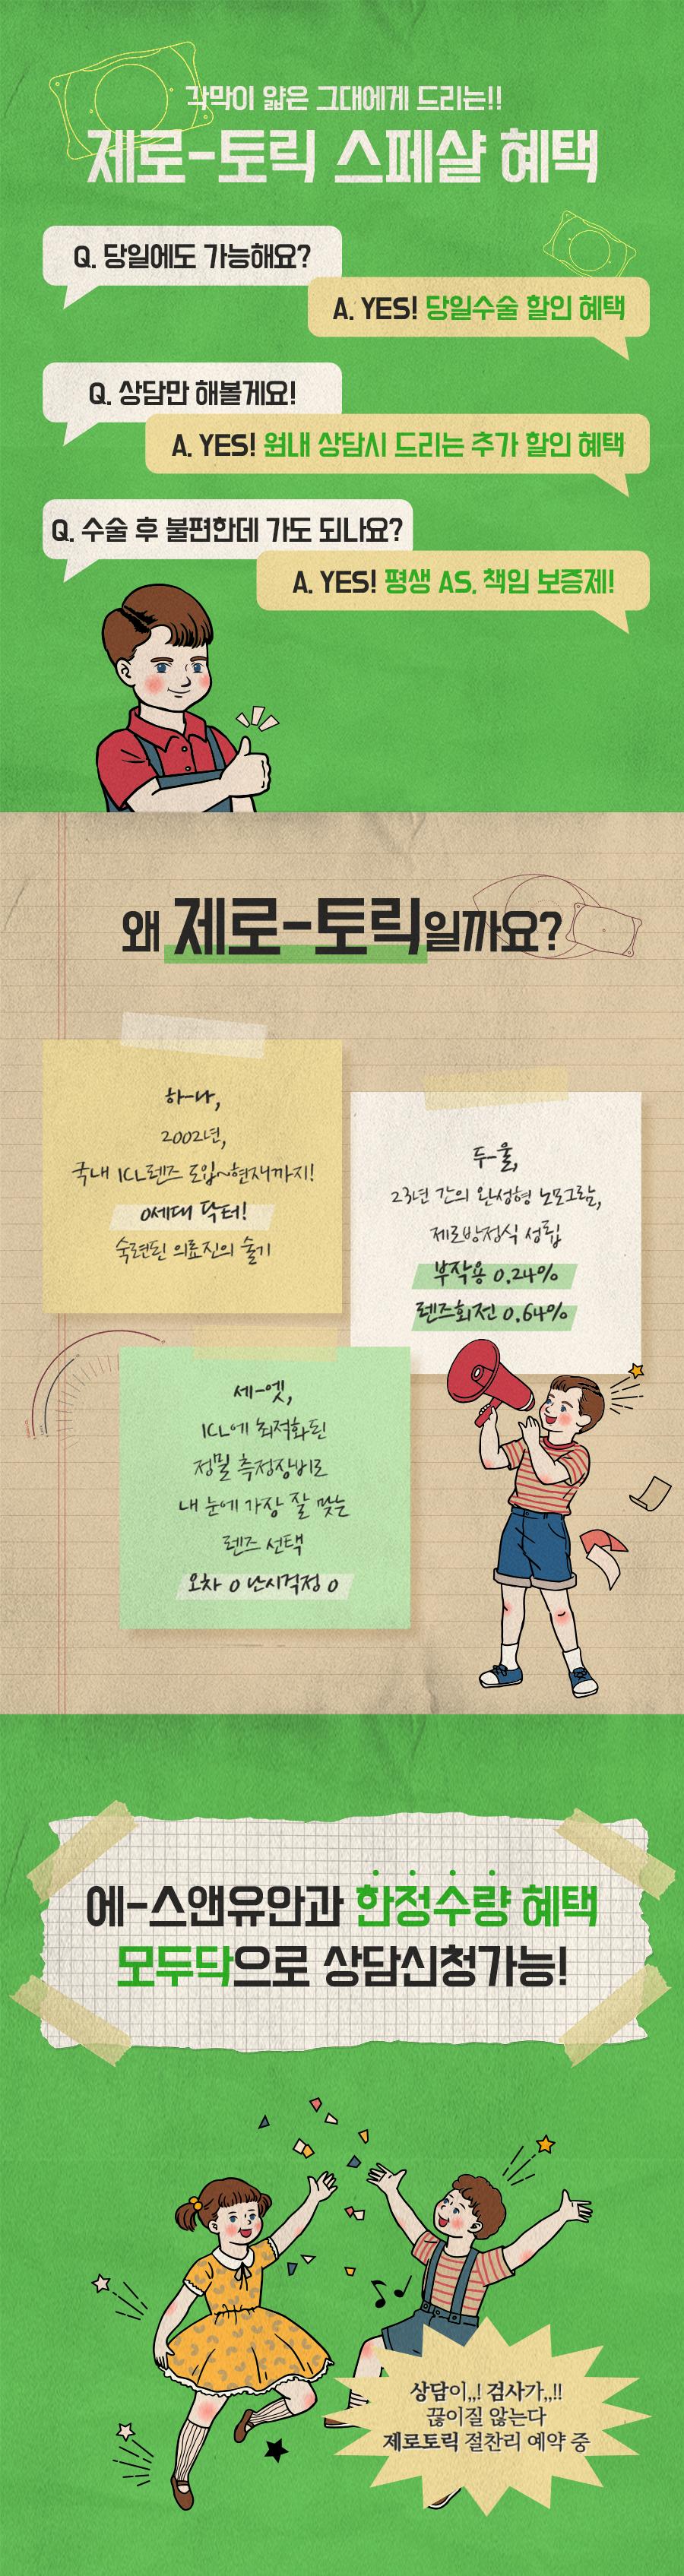 각막이 얇은 그대에게 드리는!!
제로-토릭 스페샬 혜택
Q. 당일에도 가능해요?
A. YES! 당일수술 할인 혜택
Q. 상담만 해볼게요!
A. YES! 원내 상담시 드리는 추가 할인 혜택
Q. 수술 후 불편한데 가도 되나요?
A. YES! 평생 AS, 책임 보증제!
왜 제로-토릭일까요?
하-나,
2002년,
국내 ICL렌즈 도입~현재까지!
0세대 닥터!
숙련된 의료진의 술기
두-울,
23년 간의 완성형 노모그램,
제로방정식 성립
부작용 0.24%
렌즈회전 0.64%
세-엣,
ICL에 최적화된
정밀 측정장비로
내 눈에 가장 잘 맞는
렌즈 선택
오차 0 난시걱정 0
에-스앤유안과 한정수량 혜택
모두닥으로 상담신청가능!
상담이,,! 검사가,,!!
끊이질 않는다
제로토릭 절찬리 예약 중